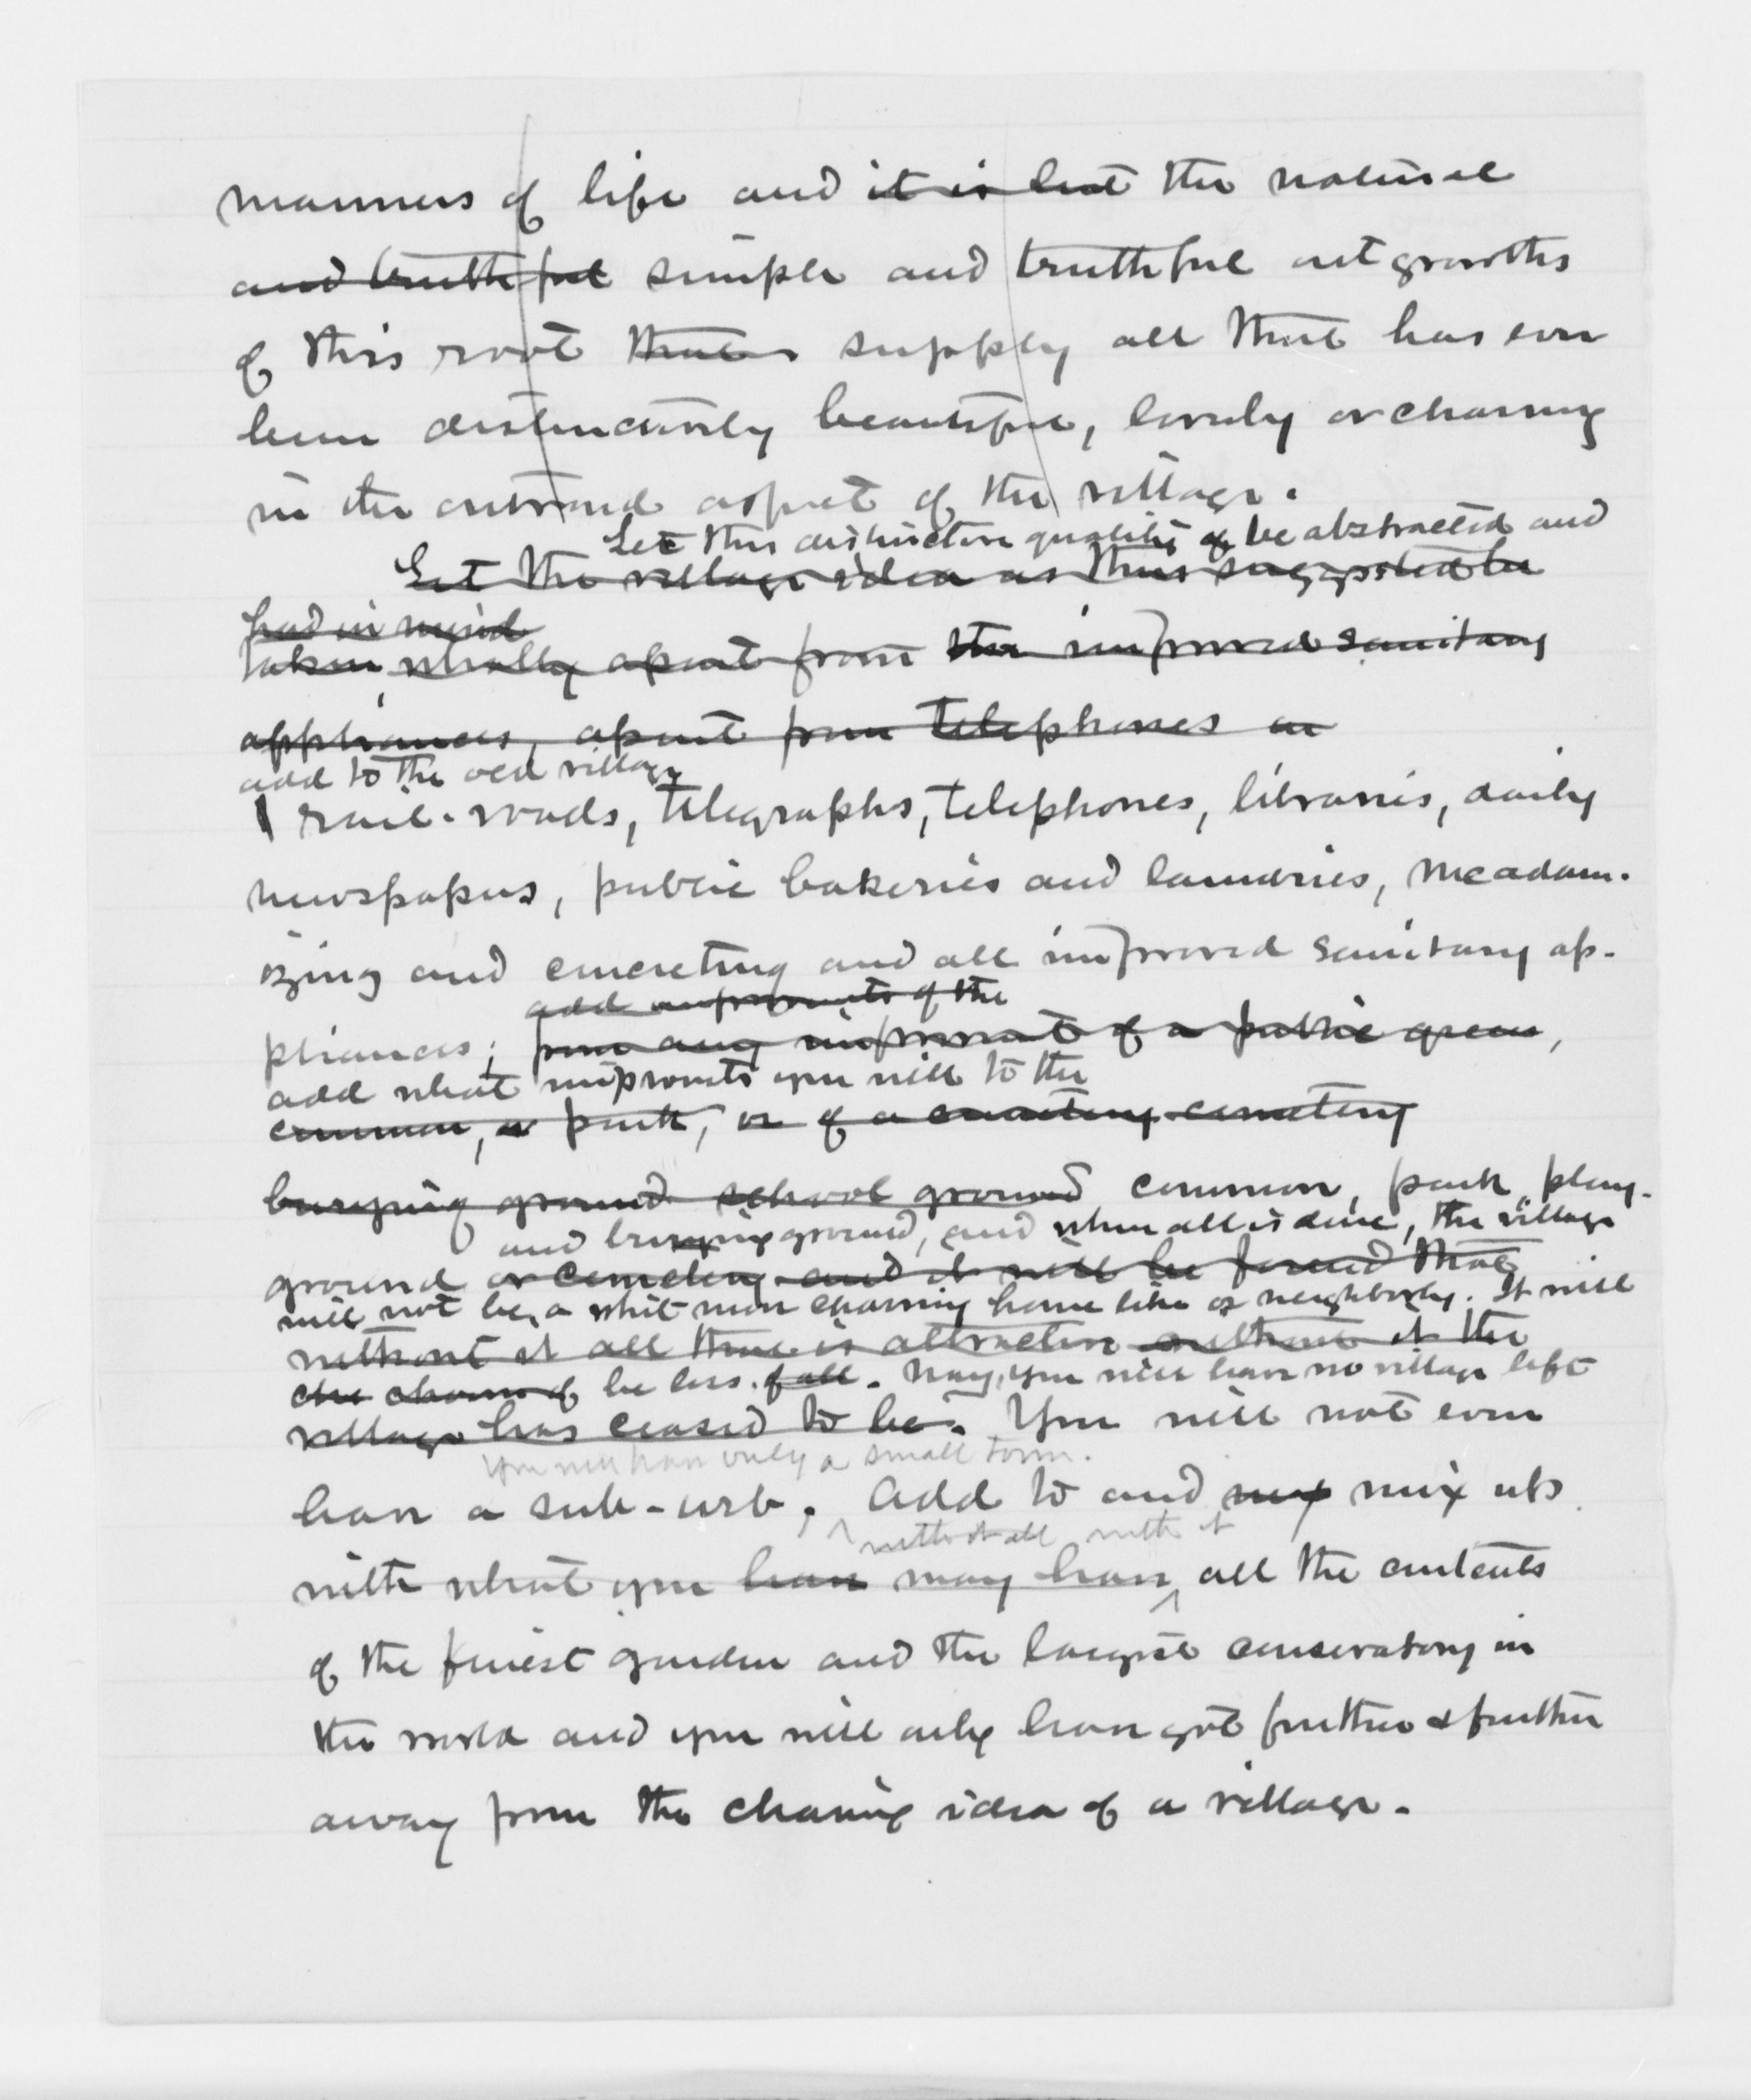 manners of life and it is but the natural
and truthful simple and truthful outgrowths
of this root supply all that has ever
been distinctively beautiful, lovely or charming
in the outward aspect of the village.
Let this distinctive quality of be abstracted and
Let the village idea as thus suggested be
had in mind
taken wholly apart from the improved sanitary
appliances, apart from telephones or
add to the old village
rail-roads, telegraphs, telephones, libraries, daily
newspapers, public bakeries and laundries, mcadam-
izing and concreting and all improved sanitary ap-
add improvements of the
pliances; from any improvement of a public green,
add what improvmts you will to the
common, or park, or of a cemetery
burying ground school ground common, park, play-
and burying ground, and when all is done, the village
ground or cemetery and it will be found that
will not be a whit more charming home like or neighborly. It will
without it all that is attractive without it the
the charm of be less. of all. Nay, you will have no village left
village has ceased to be. You will not even
You will have only a small town.
have a sub-urb. Add to and mix mix up
with it all with it
with what you have may have all the contents
of the finest garden and the largest conservatory in
the world and you will only have got further & further
away from the charming idea of a village.